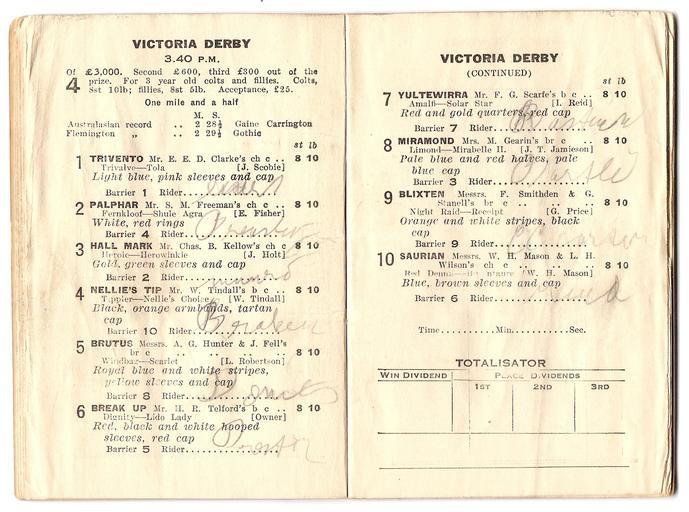 VICTORIA DERBY
3.40 P.M.
4 Of £3,000. Second £600, third £300 out of the
prize. For 3 year old colts and fillies. Colts,
8st 10lb; fillies, 8st 5lb. Acceptance, £25.
One mile and a half
M. S.
Australasian record .. 2 28½ Gaine Carrington
Flemington „ .. 2 29½ Gothic
st lb
1 TRIVENTO Mr. E. E. D. Clarke's ch c .. 8 10
Trivalve—Tola [J. Scobie]
Light blue, pink sleeves and cap
Barrier 1 Rider
2 PALPHAR Mr. S. M. Freeman's ch c .. 8 10
Fernkloof—Shule Agra [E. Fisher]
White, red rings
Barrier 4 Rider
3 HALL MARK Mr. Chas. B. Kellow's ch c 8 10
Heroic—Herowinkie [J. Holt]
Gold, green sleeves and cap
Barrier 2 Rider
4 NELLIE'S TIP Mr. W. Tindall's b c .. 8 10
Tippler—Nellie's Choice [W. Tindall]
Black, orange armbands, tartan
cap
Barrier 10 Rider
5 BRUTUS Messrs. A. G. Hunter & J. Fell's
br c .. 8 10
Windbag—Scarlet [L. Robertson]
Royal blue and white stripes,
yellow sleeves and cap
Barrier 8 Rider
6 BREAK UP Mr. H. R. Telford's b c .. 8 10
Dignity—Lido Lady [Owner]
Red, black and white hooped
sleeves, red cap
Barrier 5 Rider
VICTORIA DERBY
(CONTINUED)
st lb
7 YULTEWIRRA Mr. F. G. Scarfe's b c .. 8 10
Amalfi—Solar Star [I. Reid]
Red and gold quarters, red cap
Barrier 7 Rider
8 MIRAMOND Mrs. M. Gearin's br c .. 8 10
Limond—Mirabelle II. [J. T. Jamieson]
Pale blue and red halves, pale
blue cap
Barrier 3 Rider
9 BLIXTEN Messrs. F. Smithden & G.
Stanell's br c 8 10
Night Raid—Receipt [G. Price]
Orange and white stripes, black
cap
Barrier 9 Rider
10 SAURIAN Messrs. W. H. Mason & L. H.
Wilson's ch c 8 10
Red [W. H. Mason]
Blue, brown sleeves and cap
Barrier 6 Rider
Time Min. Sec.
TOTALISATOR
WIN DIVIDEND PLACE DIVIDENDS
1ST 2ND 3RD